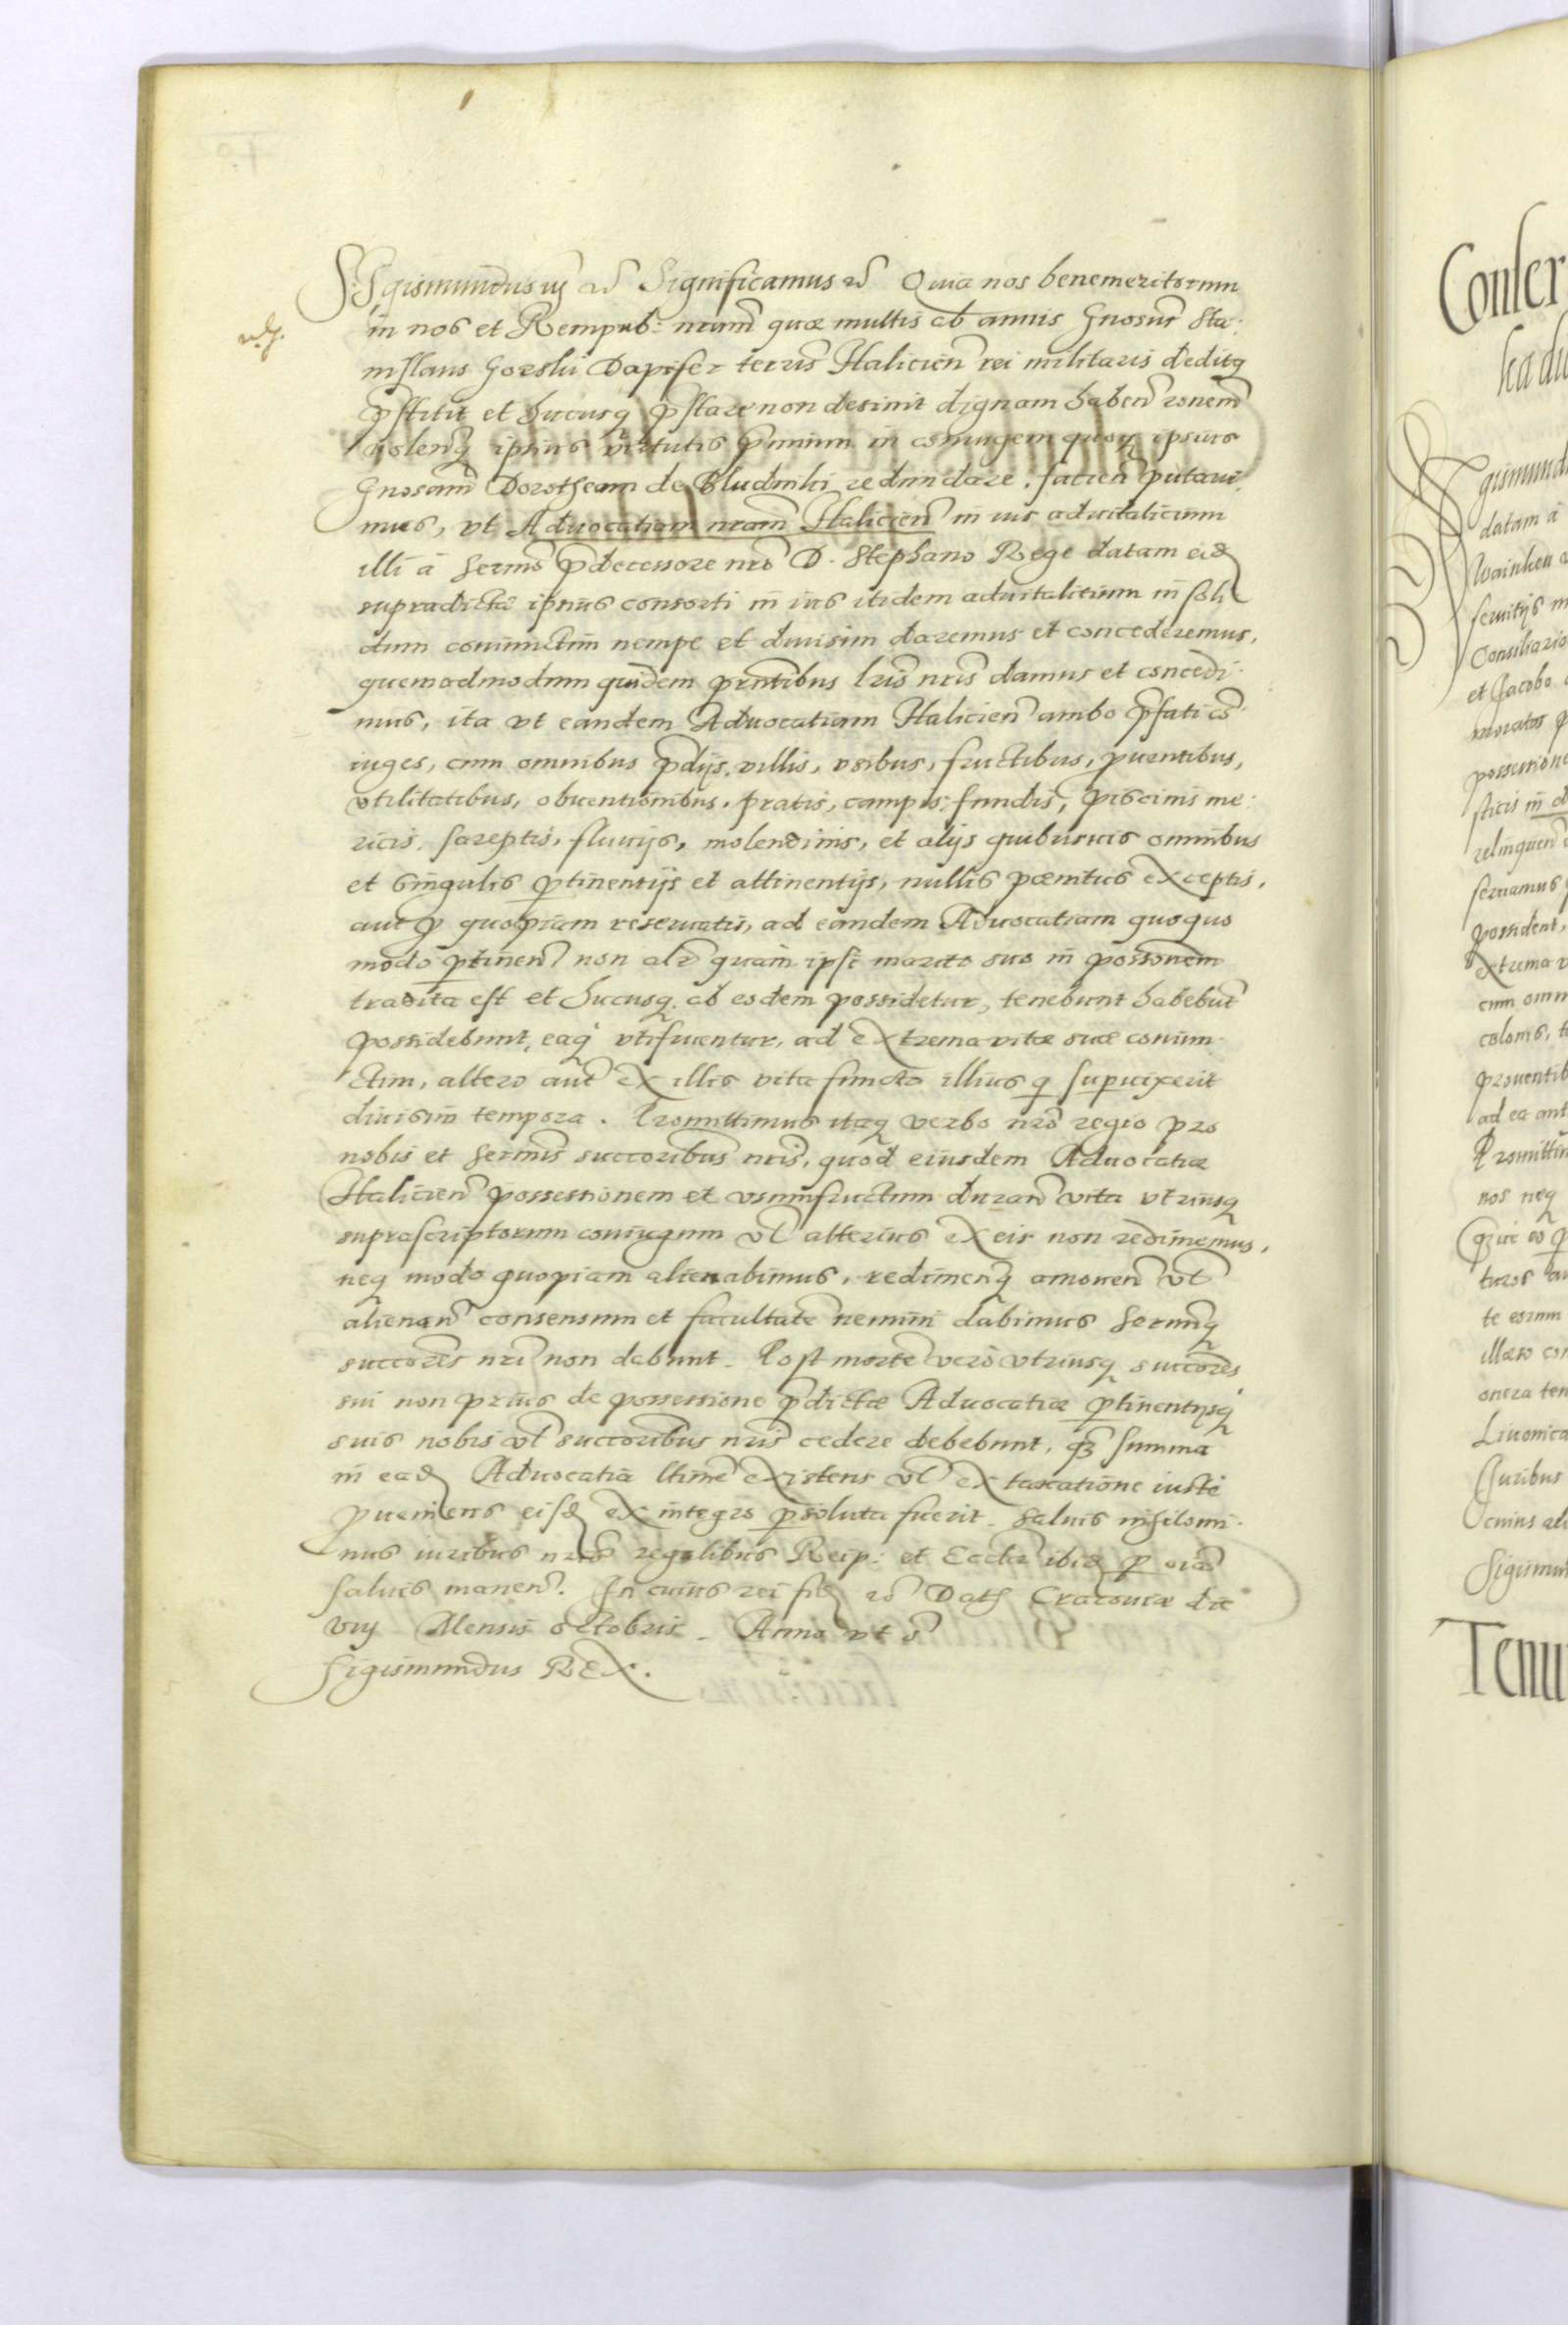 Sigismundus iij etc Significamus etc Quia nos benemeritorum
in nos et Rempub: nram̃ quæ multis ab annis Gnosus̃ Sta-
nislaus Gorski Dapifer terræ Halicien̄ rei militaris deditq
p̄stitit et hucusq p̄stare non desinit dignam haben̄ ronem̃
volenq ipsius virtutis p̄mium in coniugem quoq ipsius
Gnosam̃ Dorotheam de Bludniki redundare. facien̄ putaui
mus, vt Aduocatiam nram̃ Halicien̄ in ius aduitalicium
illi à Sermo p̄decessore nro D. Stephano Rege datam eid
supradictæ ipsius consorti in ius itidem aduitalitium in soli
dum coniunctim nempe et diuisim daremus et concederemus,
quemadmodum quidem prntibus lris nris damus et concedi-
mus, ita vt eandem Aduocatiam Halicien̄ ambo p̄fati co-
iuges, cum omnibus p̄dijs, villis, vsibus, fructibus, puentibus,
vtilitatibus, obuentionibus, pratis, campis, fundis, piscinis me-
ricis, sareptis, fluuijs, molendinis, et alijs quibusuis omnibus
et singulis ptinentijs et attinentijs, nullis pœnitus exceptis,
aut p quopiam reseruatis, ad eandem Aduocatiam quoquo
modo ptinen̄ non alr quàm ipsi marito suo in possonem
tradita est et hucusq ab eodem possidetur, tenebunt habebūt
possidebunt, eaq vtifruentur, ad extrema vitæ suæ coniun-
ctim, altero aut̄ ex illis vita functo illius q supuixerit
diuisim tempora. Promittimus itaq verbo nro regio pro
nobis et Sermis succoribus nris, quod eiusdem Aduocatiæ
Halicien̄ possessionem et vsumfructum duran̄ vita vtriusq
suprascriptorum coniugum vl alterius ex eis non redimemus,
neq modo quopiam alienabimus, redimenq amouen̄ vl
alienan̄ consensum et facultatē nemini dabimus Sermiq
succores nri non dabunt. Post mortē vero vtriusq succores
sui non prius de possessione p̄dictæ Aduocatiæ ptinentijsq
suis nobis vl succoribus nris cedere debebunt, qz summa
in ead Aduocatia ltime existens vl ex taxatione iustè
pueniens eisd ex integro psoluta fuerit. Saluis nihilomi-
nus iuribus nris regalibus Reip: et Ecclæ ibid p oia
saluis manen̄. In cuius rei fid etc Dat Cracouiæ die
viij Mensis octobris. Anno vt s
Sigismundus REX.
Confer
gismund
datam à
Consiliario
et Jacobo
possessione
possident,
extrema v
cum omn
Promittim
nos neq
te eorum
onera ten
Liuonica
Juribus
Sigismun
Tenu